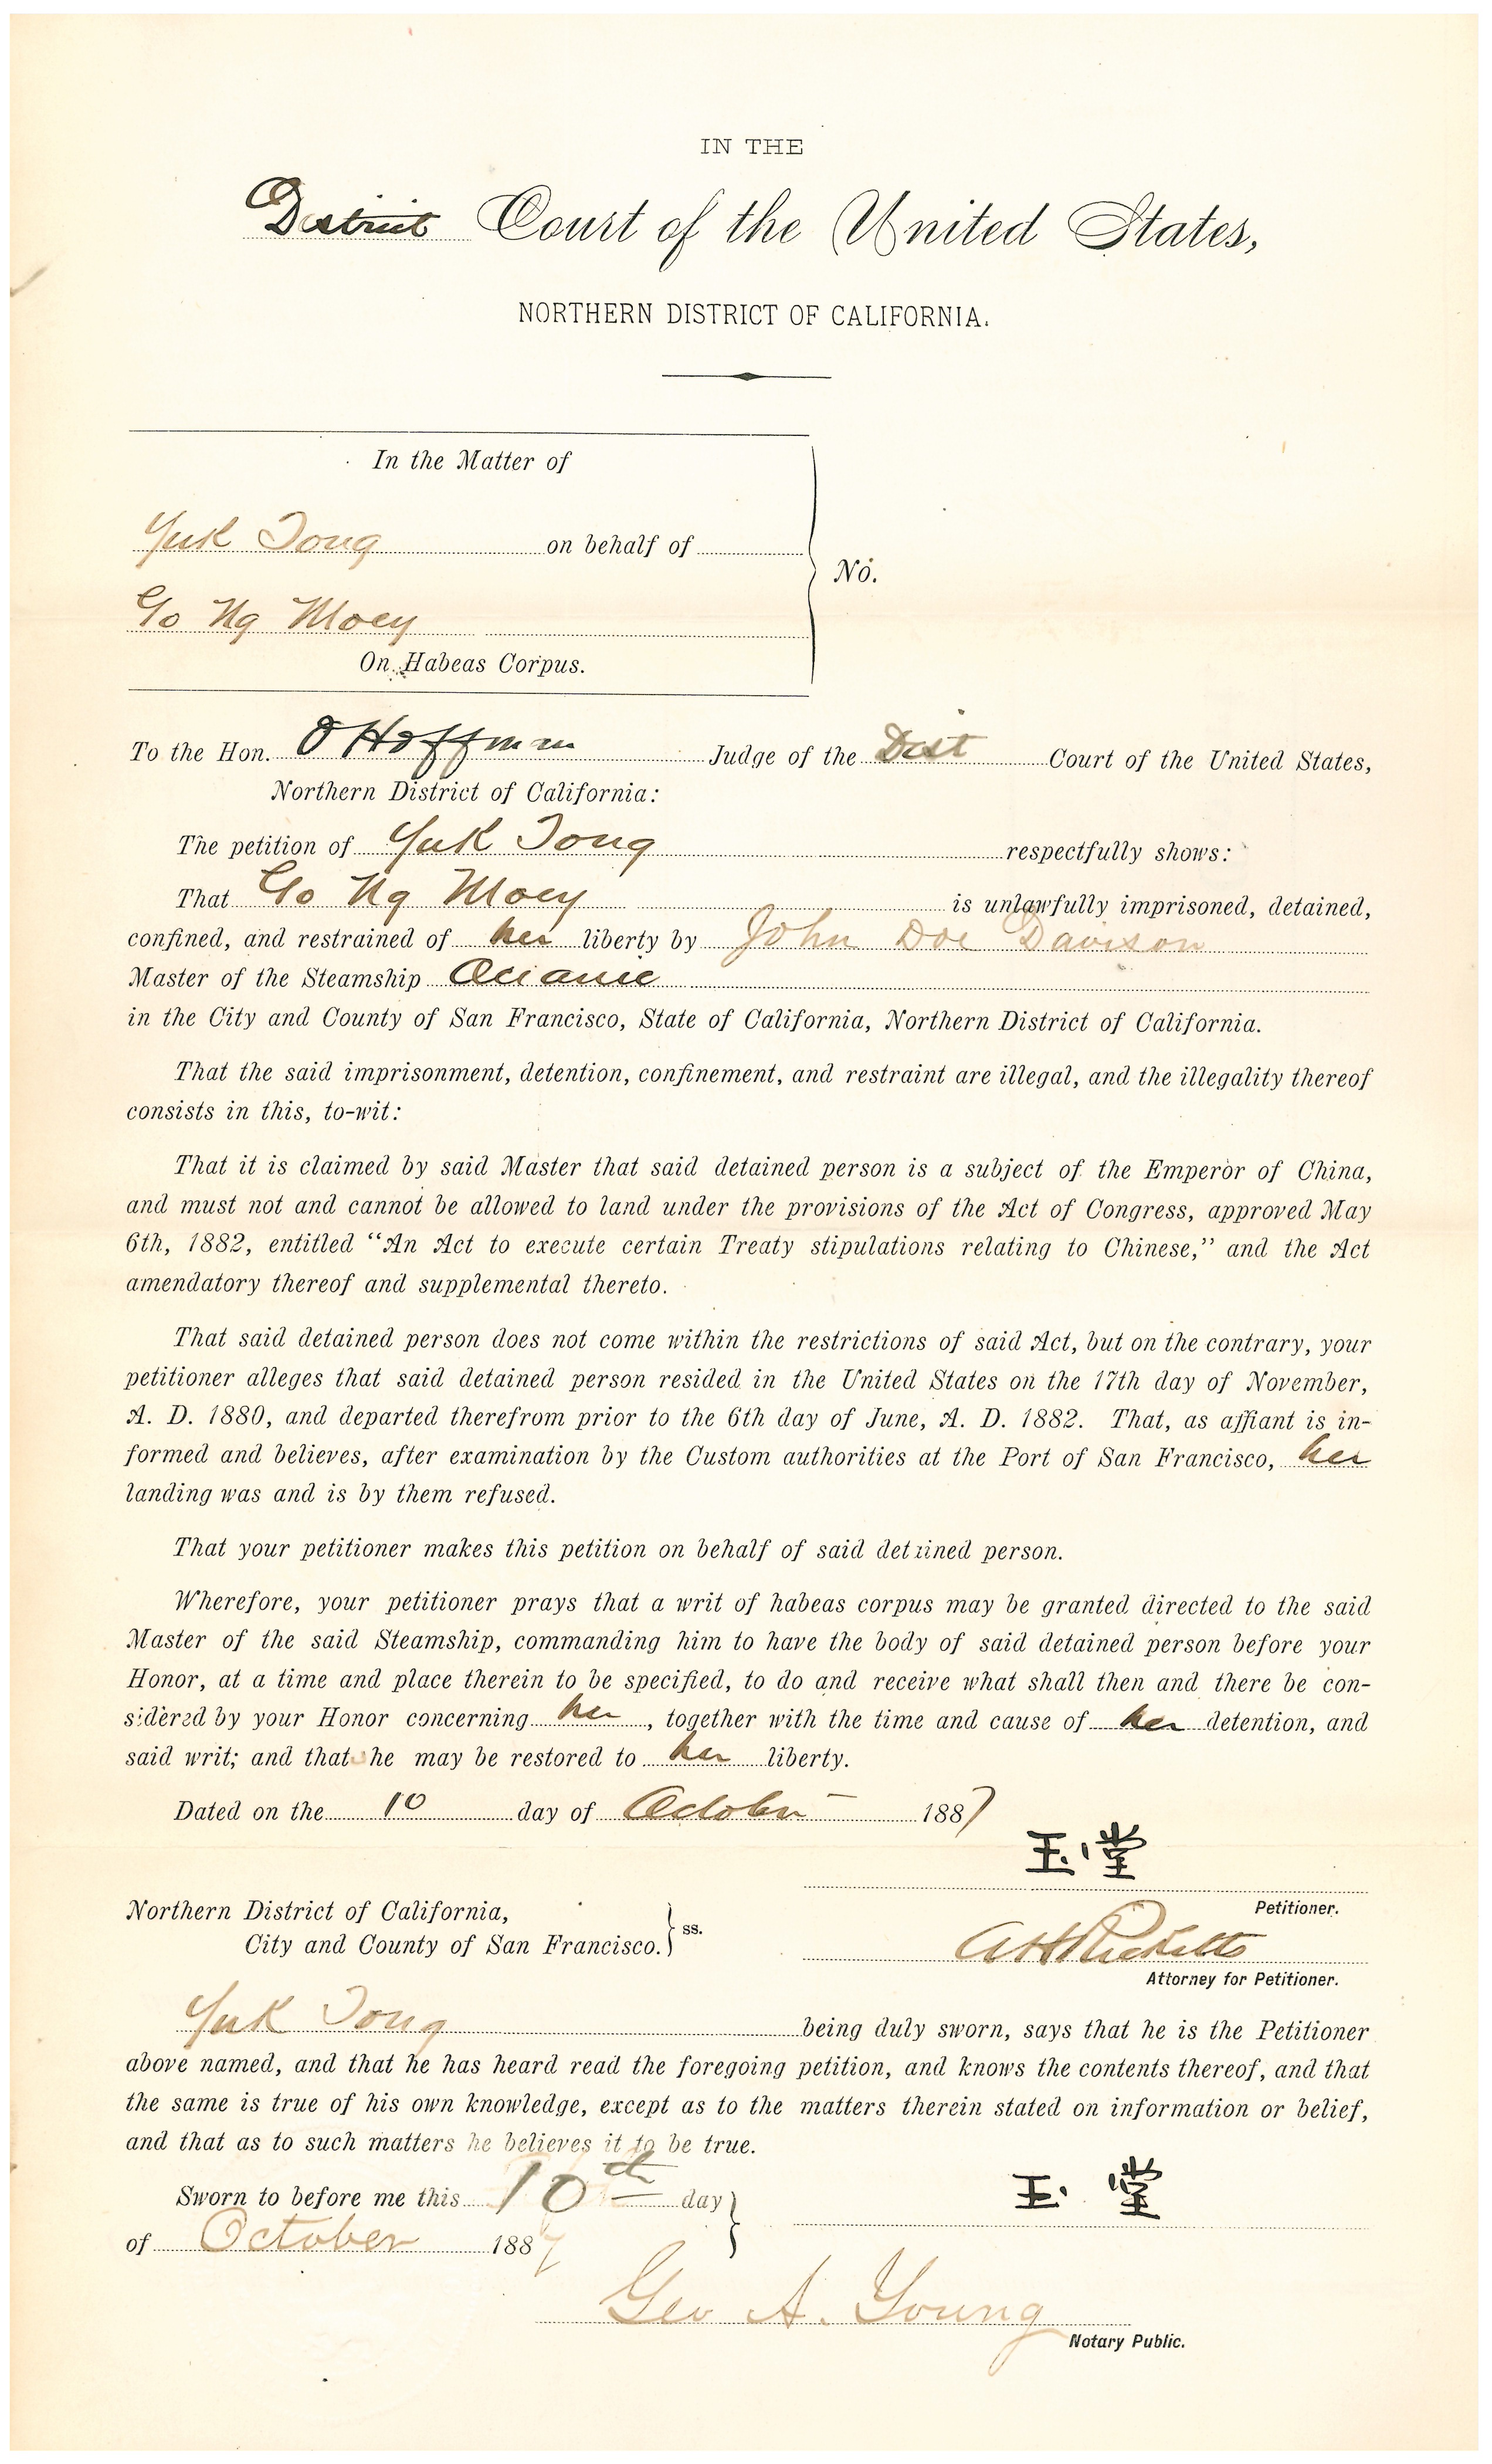 IN THE
District Court of the United States,
NORTHERN DISTRICT OF CALIFORNIA.
In the Matter of
Yuk Tong on behalf of
Go Ng Moey
No.
On Habeas Corpus.
To the Hon. O Hoffman Judge of the Dist Court of the United States,
Northern District of California:
The petition of Yuk Tong respectfully shows:
That Go Ng Moey is unlawfully imprisoned, detained,
confined, and restrained of her liberty by John Doe Davison
Master of the Steamship Oceanic
in the City and County of San Francisco, State of California, Northern District of California.
That the said imprisonment, detention, confinement, and restraint are illegal, and the illegality thereof
consists in this, to-wit:
That it is claimed by said Master that said detained person is a subject of the Emperor of China,
and must not and cannot be allowed to land under the provisions of the Act of Congress, approved May
6th, 1882, entitled “An Act to execute certain Treaty stipulations relating to Chinese,” and the Act
amendatory thereof and supplemental thereto.
That said detained person does not come within the restrictions of said Act, but on the contrary, your
petitioner alleges that said detained person resided in the United States on the 17th day of November,
A. D. 1880, and departed therefrom prior to the 6th day of June, A. D. 1882. That, as affiant is in-
formed and believes, after examination by the Custom authorities at the Port of San Francisco, her
landing was and is by them refused.
That your petitioner makes this petition on behalf of said detained person.
Wherefore, your petitioner prays that a writ of habeas corpus may be granted directed to the said
Master of the said Steamship, commanding him to have the body of said detained person before your
Honor, at a time and place therein to be specified, to do and receive what shall then and there be con-
sidered by your Honor concerning her, together with the time and cause of her detention, and
said writ; and that she may be restored to her liberty.
Dated on the 10 day of October 1887
玉堂
Petitioner.
Northern District of California,
City and County of San Francisco. } ss.
A H Ricketts
Attorney for Petitioner.
Yuk Tong being duly sworn, says that he is the Petitioner
above named, and that he has heard read the foregoing petition, and knows the contents thereof, and that
the same is true of his own knowledge, except as to the matters therein stated on information or belief,
and that as to such matters he believes it to be true.
Sworn to before me this 10th day
of October 1887
玉堂
Geo A. Young
Notary Public.